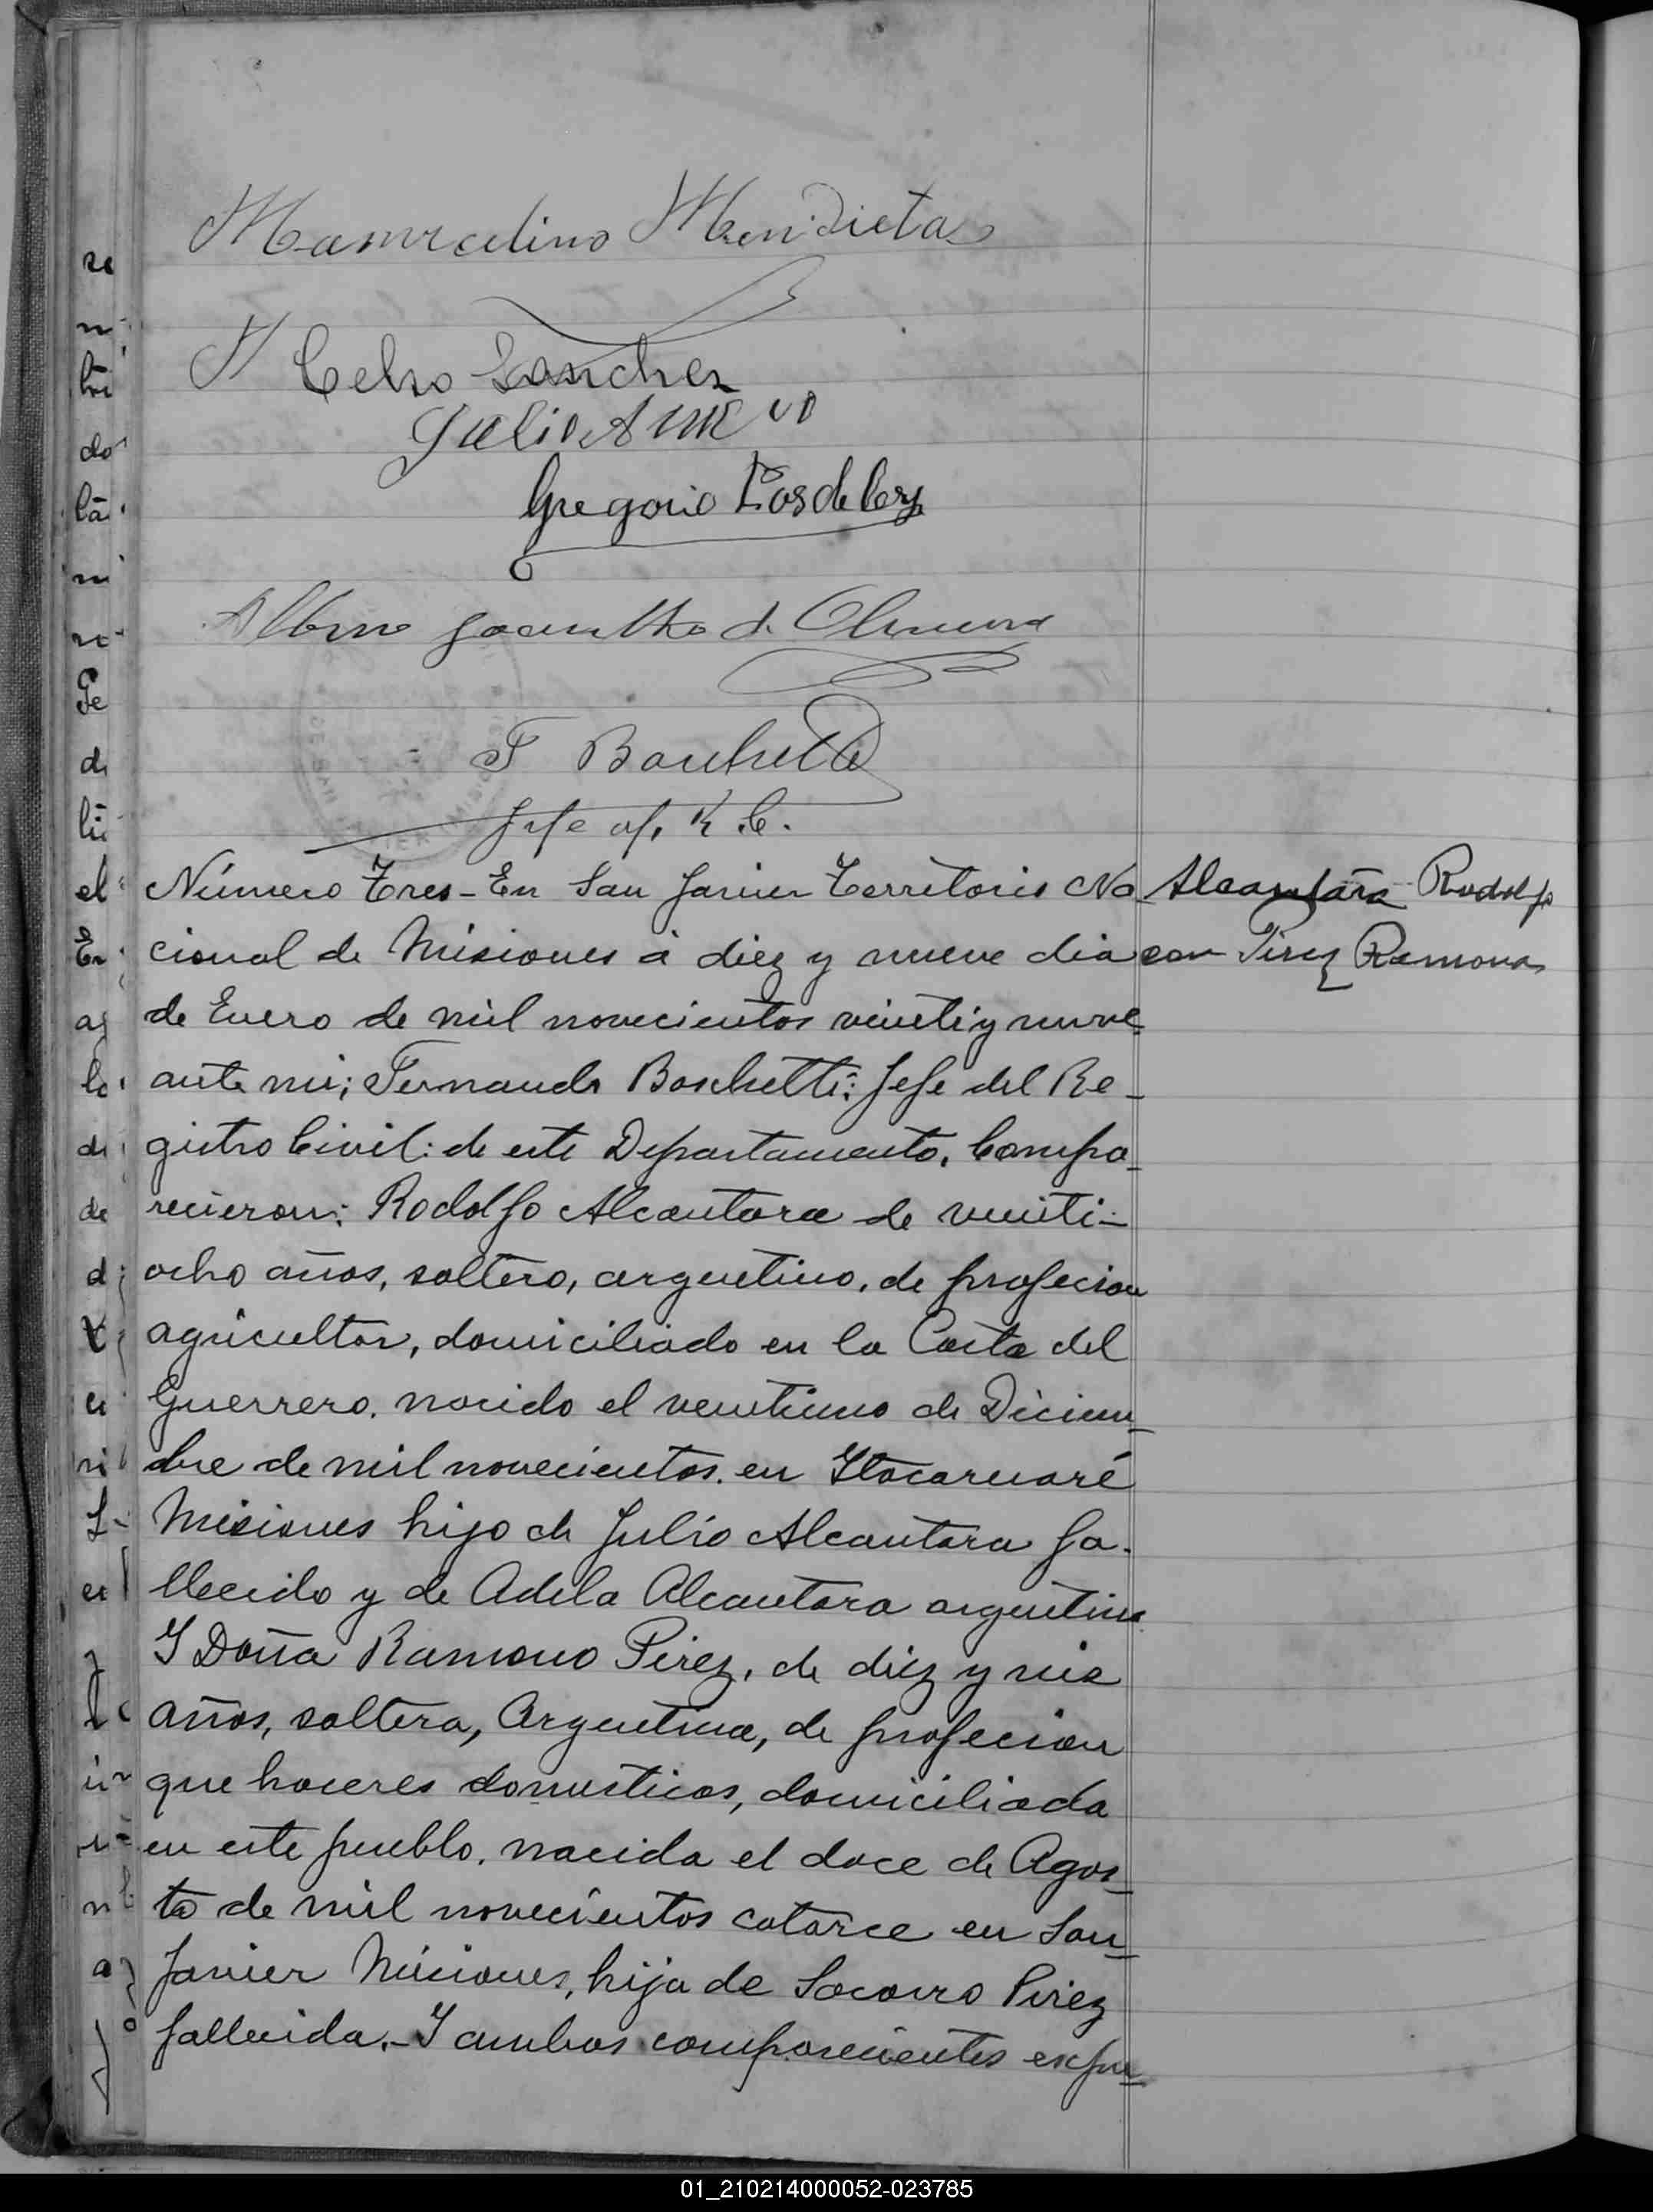 Mendieta
Celso Sanchez
Julio A
Gregorio
Albino Jacintho d.
F Boschetti
Jefe of. R. C.
Número Tres - En San Javier Territorio Na
cional de Misiones á diez y nueve dia
de Enero de mil novecientos veinti y nueve
ante mi; Fernando Boschetti: Jefe del Re-
gistro Civil: de este Departamento. Compa-
recieron: Rodolfo Alcantara de veinti-
ocho años, soltero, argentino, de profecion
agricultor, domiciliado en la Costa del
Guerrero. nacido el veintiuno de Diciem-
bre de mil novecientos. en Itacaruaré
Misiones hijo de Julio Alcantara fa-
llecido y de Adela Alcantara argentina
Y Doña Ramona Pirez, de diez y seis
años, soltera, Argentina, de profecion
que haceres domesticos, domiciliada
en este pueblo. nacida el doce de Agos-
to de mil novecientos catorce en San
Javier Misiones, hija de Socorro Pirez
fallecida.- Y ambos comparecientes expu-
Alcantara Rodolfo
con Pirez Ramona
01_210214000052-023785